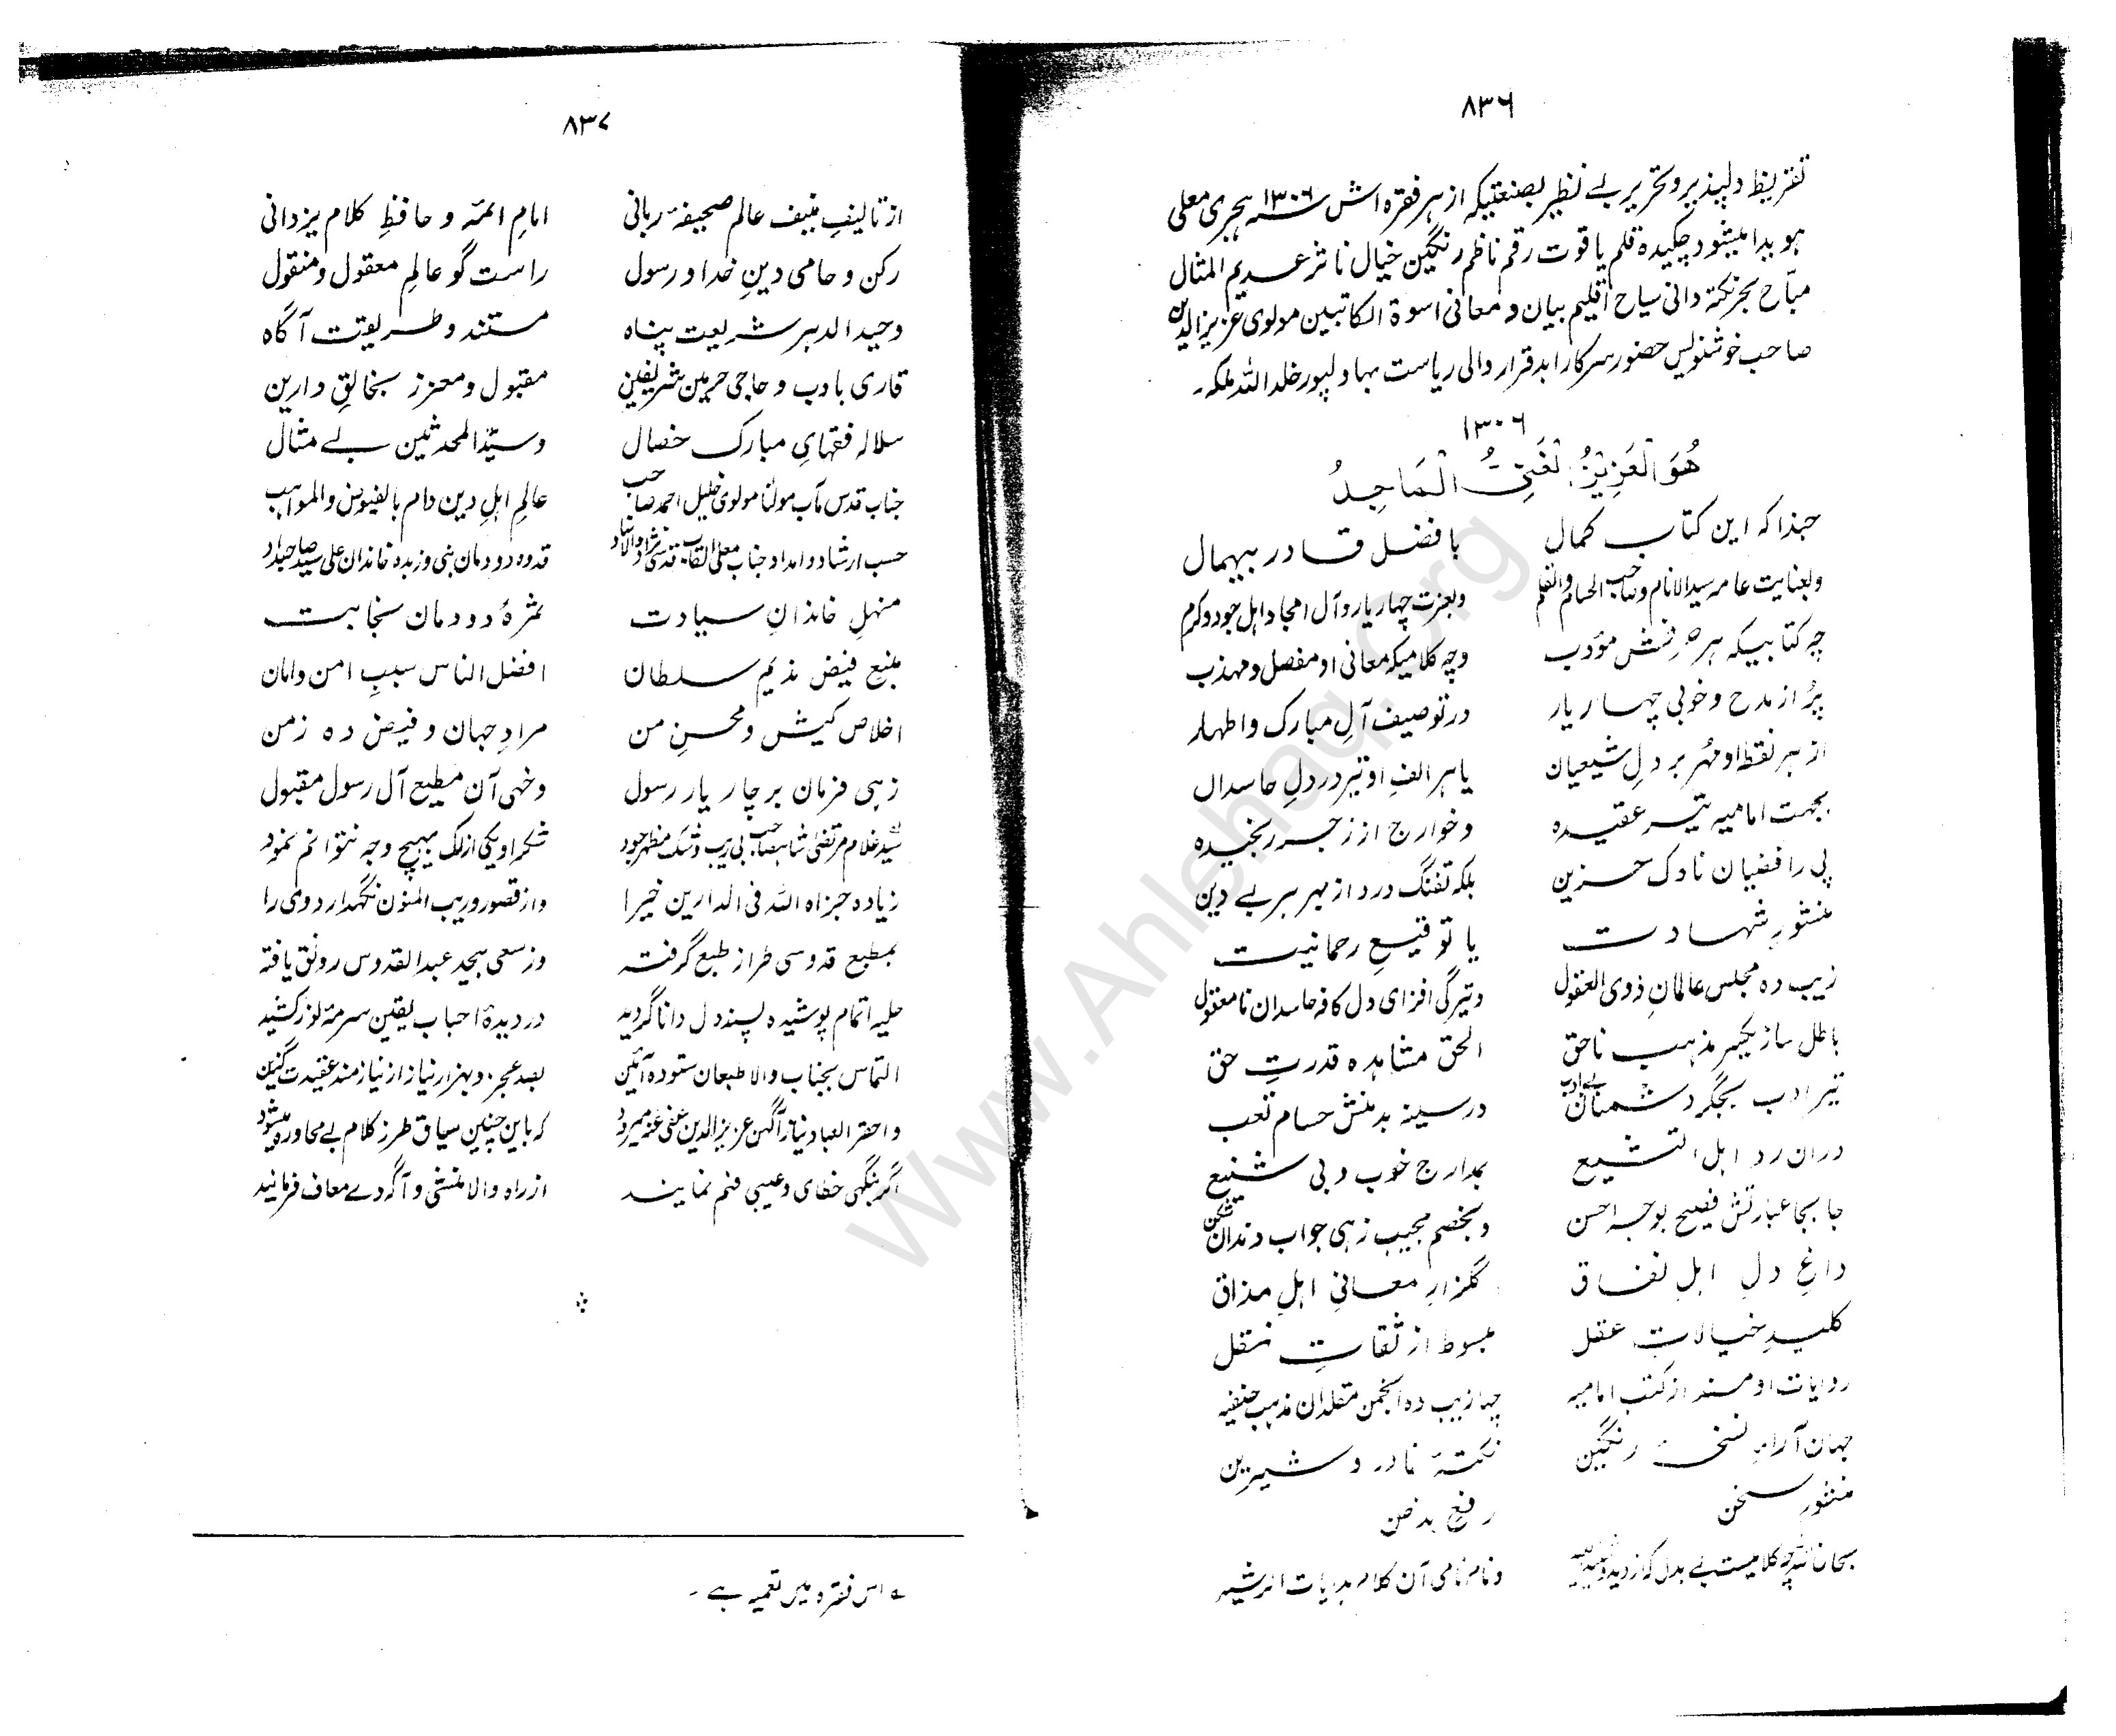 ۸۳۶
تقریظ دلپذیر و تحریر بے نظیر بصنعتیکہ از ہر فقرہ اش سنہ ۱۳۰۶ ہجری معلی
ہویدا میشود چکیدہ قلم یاقوت رقم ناظم رنگین خیال ناثر عدیم المثال
سباح بحر نکتہ دانی سیاح اقلیم بیان و معانی اسوۃ الکاتبین مولوی عزیز الدین
صاحب خوشنویس حضور سرکار ابد قرار والی ریاست بہاولپور خلد اللہ ملکہ۔
۱۳۰۶
هُوَ الْعَزِيْزُ الْغَنِيُّ الْمَاجِدُ
حبذا کہ این کتاب کمال با فضل قادر بیہمال
و بعنایت عامہ سید الانام و صاحب الحسام والقلم و بعزت چہار یار و آل امجاد اہل جود و کرم
چہ کتابیکہ ہر حرفش مؤدب وچہ کلامیکہ معانی او مفصل و مہذب
پُر از مدح و خوبی چہار یار در توصیف آلِ مبارک و اطہار
از ہر نقطہ او مُہر بر دلِ شیعیان یا ہر الفِ او تیر در دلِ حاسدان
بجہت امامیہ تیر عقیدہ و خوارج از زجر رنجیدہ
پی رافضیان ناوک حزین بلکہ تفنگ درد از بہر ہر بے دین
منشورِ شہادت یا توقیعِ رحمانیت
زیب دہ مجلس عالمانِ ذوی العقول و تیرگی افزای دل کافہ حاسدان نامعقول
باطل ساز یکسر مذہب ناحق الحق مشاہدہ قدرتِ حق
تیر ادب بجگر دشمنان بے ادب در سینہ بدمنش حسام تعب
دران رد اہل التشیع بمدارج خوب و بی شنیع
جابجا عبارتش فصیح بوجہ احسن و بخصم مجیب زہی جواب دندان شکن
داغِ دلِ اہلِ نفاق گلزارِ معانیِ اہلِ مذاق
کلیدِ خیالاتِ عقل مبسوط از ثقاتِ نقل
روایات او مستند از کتب امامیہ چہا زیب دہ انجمن مقلدان مذہب حنفیہ
جہان آرای نسخہ رنگین نکتہ نادر و شیرین
منثور سخن رفع بدظن
سبحان اللہ چہ کلامیست بے بدل و نام نامی آن کلام ہدایات الرشید
۸۳۷
از تالیفِ منیف عالم صحیفہ ربانی امامِ ائمہ و حافظِ کلام یزدانی
رکن و حامی دینِ خدا و رسول راست گو عالمِ معقول و منقول
وحید الدہر شریعت پناہ مستند و طریقت آگاہ
قاری باادب و حاجی حرمین شریفین مقبول و معزز بخالقِ دارین
سلالہ فقہایِ مبارک خصال و سیّد المحدثین بے مثال
جناب قدس مآب مولٰنا مولوی خلیل احمد صاحب عالمِ اہلِ دین دام بالفیوض والمواہب
حسب ارشاد و امداد جناب معلی القاب قدسی نژاد والانہاد قدوہ دودمان بنی و زبدہ خاندان علی سید صاحبزاد
منہلِ خاندانِ سیادت ثمرۂ دودمان نجابت
منبع فیض ندیم سلطان افضل الناس سببِ امن و امان
اخلاص کیش و محسنِ من مرادِ جہان و فیض دہ زمن
زہی فرمان بر چار یار رسول و خہی آن مطیع آل رسول مقبول
سید غلام مرتضیٰ شاہ صاحب بی ریب و شک مظہر جود شکر او یکی از لک بہیچ وجہ نتوانم نمود
زیادہ جزاہ اللہ فی الدارین خیرا و از قصور و ریب المنون نگہدارد وی را
بمطبع قدوسی طراز طبع گرفتہ و ز سعی بیحد عبد القدوس رونق یافتہ
حلیہ اتمام پوشیدہ پسند دل دانا گردید در دیدۂ احباب یقین سرمۂ نور کشید
التماس بجناب والا طبعان ستودہ آئین بصد عجز و ہزار نیاز از نیازمند عقیدت گزین
و احقر العباد نیاز آگین عزیز الدین عفی عنہ میرود کہ باین چنین سیاق طرز کلام بے محاورہ میشود
اگر بنگہی خطای و عیبی فہم نمایند از راہ والا منشی و آگہ دے معاف فرمایند
ـہ اس فقرہ میں تعمیہ ہے ۔
www.Ahlehaq.Org